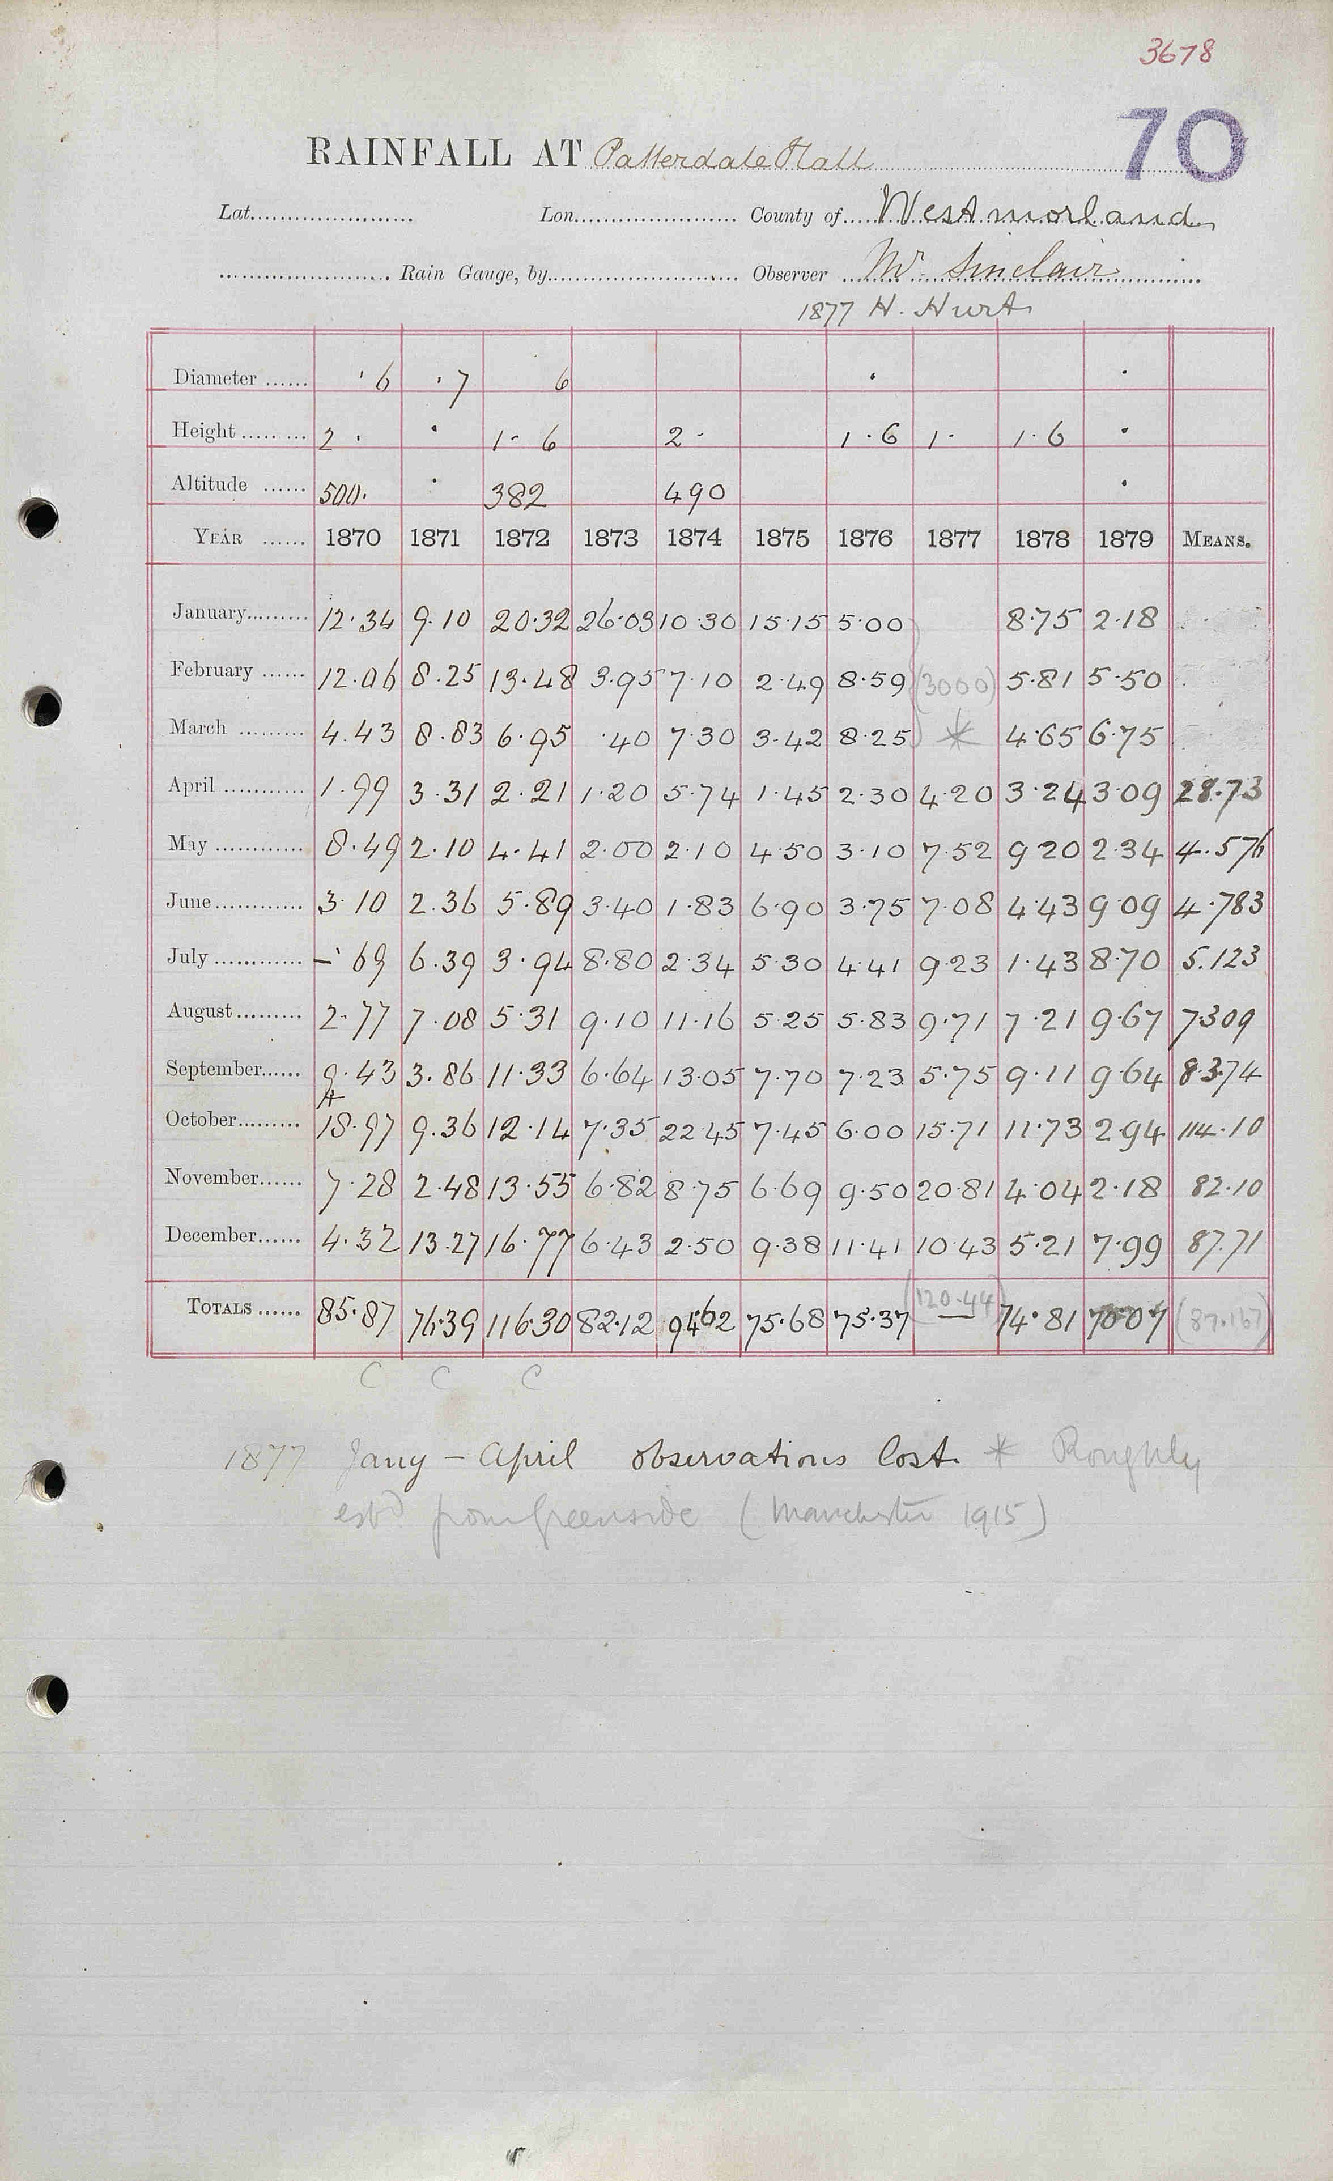 3678
70
RAINFALL AT Patterdale Hall
Lat. Lon. County of Westmorland
Rain Gauge, by Observer Mr Sinclair
1877 H. Hurt
Diameter ·6 ·7 6
Height 2 · 1 · 6 2 · 1 · 6 1 · 1 · 6
Altitude 500. 382 490
YEAR 1870 1871 1872 1873 1874 1875 1876 1877 1878 1879 MEANS.
January 12.34 9.10 20.32 26.03 10 30 15.15 5.00 8.75 2.18
February 12.06 8.25 13.48 3.95 7.10 2.49 8.59 (3000) 5.81 5.50
March 4.43 8.83 6.95 .40 7.30 3.42 8.25 * 4.65 6.75
April 1.99 3.31 2.21 1.20 5.74 1.45 2.30 4.20 3.24 3.09 28.73
May 8.49 2.10 4.41 2.00 2.10 4.50 3.10 7.52 9 20 2.34 4.576
June 3 10 2.36 5.89 3.40 1.83 6.90 3.75 7.08 4.43 9.09 4.783
July –.69 6.39 3.94 8.80 2.34 5.30 4.41 9.23 1.43 8.70 5.123
August 2.77 7.08 5.31 9.10 11.16 5.25 5.83 9.71 7.21 9.67 7309
September 9.43 3.86 11.33 6.64 13.05 7.70 7.23 5.75 9.11 9.64 8.374
October 18.97 9.36 12.14 7.35 22 45 7.45 6.00 15.71 11.73 2.94 114.10
November 7.28 2.48 13.55 6.82 8.75 6.69 9.50 20.81 4.04 2.18 82.10
December 4.32 13.27 16.77 6.43 2.50 9.38 11.41 10.43 5.21 7.99 87.71
TOTALS 85.87 76.39 116.30 82.12 94.62 75.68 75.37 (120.44) — 74.81 70.07 (87.167)
C C C
1877 Jany – April observations lost. * Roughly
estd from Greenside (Manchester 1915)